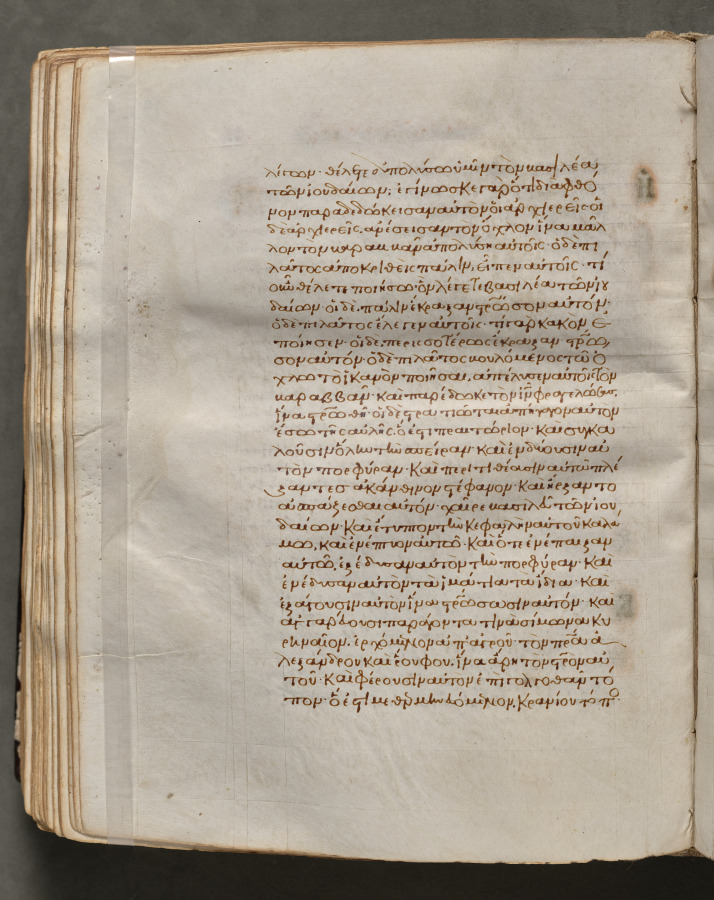 λέγων· θέλετε ἀπολύσω ὑμῖν τὸν βασιλέα
τῶν ἰουδαίων; ἐγίνωσκε γὰρ ὅτι διὰ φθό
νον παραδεδώκεισαν αὐτὸν οἱ ἀρχιερεῖς· οἱ
δὲ ἀρχιερεῖς, ἀνέσεισαν τὸν ὄχλον ἵνα μᾶλ
λον τὸν βαραββᾶν ἀπολύση αὐτοῖς· ὁ δὲ πι
λᾶτος ἀποκριθεὶς πάλιν, εἶπεν αὐτοῖς· τί
οὖν θέλετε ποιήσω ὃν λέγετε βασιλέα τῶν ἰου
δαίων· οἱ δὲ πάλιν ἔκραξαν στ̅ρωσον αὐτόν·
ὁ δὲ πιλᾶτος ἔλεγεν αὐτοῖς· τί γὰρ κακὸν ἐ
ποίησεν· οἱ δὲ περισσοτέρως ἔκραξαν στ̅ρω
σον αὐτόν· ὁ δὲ πιλᾶτος βουλόμενος τῶ ὄ
χλω τὸ ἱκανὸν ποιῆσαι, ἀπέλυσεν αὐτοῖς τὸν
βαραββᾶν· καὶ παρέδωκε τὸν ι̅ν φραγελώσας,
ἵνα στ̅ρωθῆ· οἱ δὲ στρατιῶται ἀπήγαγον αὐτὸν
ἔσω τῆς αὐλῆς, ὅ ἐστι πραιτώριον· καὶ συγκα
λοῦσιν ὅλην τὴν σπείραν· καὶ ἐνδύουσιν αὐ
τὸν πορφύραν· καὶ περιτιθέασιν αὐτῶ πλέ
ξαντες ἀκάνθινον στέφανον· καὶ ἤρξαντο
ἀσπάζεσθαι αὐτόν· χαῖρε βασιλεῦ τῶν ἰου
δαίων· καὶ ἔτυπτον τὴν κεφαλὴν αὐτοῦ καλά
μω, καὶ ἐνέπτυον αὐτῶ· καὶ ὅτε ἐνέπαιξαν
αὐτῶ, ἐξέδυσαν αὐτὸν τὴν πορφύραν· καὶ
ἐνέδυσαν αὐτὸν τὰ ἱμάτια τὰ ἴδια· καὶ
ἐξάγουσιν αὐτὸν ἵνα στ̅ρώσωσιν αὐτόν· καὶ
ἀγγαρεύουσι παράγοντά τινα σίμωνα κυ
ρηναῖον, ἐρχόμενον ἀπ' ἀγροῦ· τὸν π̅ρα ἀ
λεξάνδρου καὶ ῥούφου, ἵνα ἄρη τὸν στ̅ρον αὐ
τοῦ· καὶ φέρουσιν αὐτὸν ἐπὶ γολγοθᾶν τό
πον· ὅ ἐστι μεθερμηνευόμενον, κρανίου τόπο